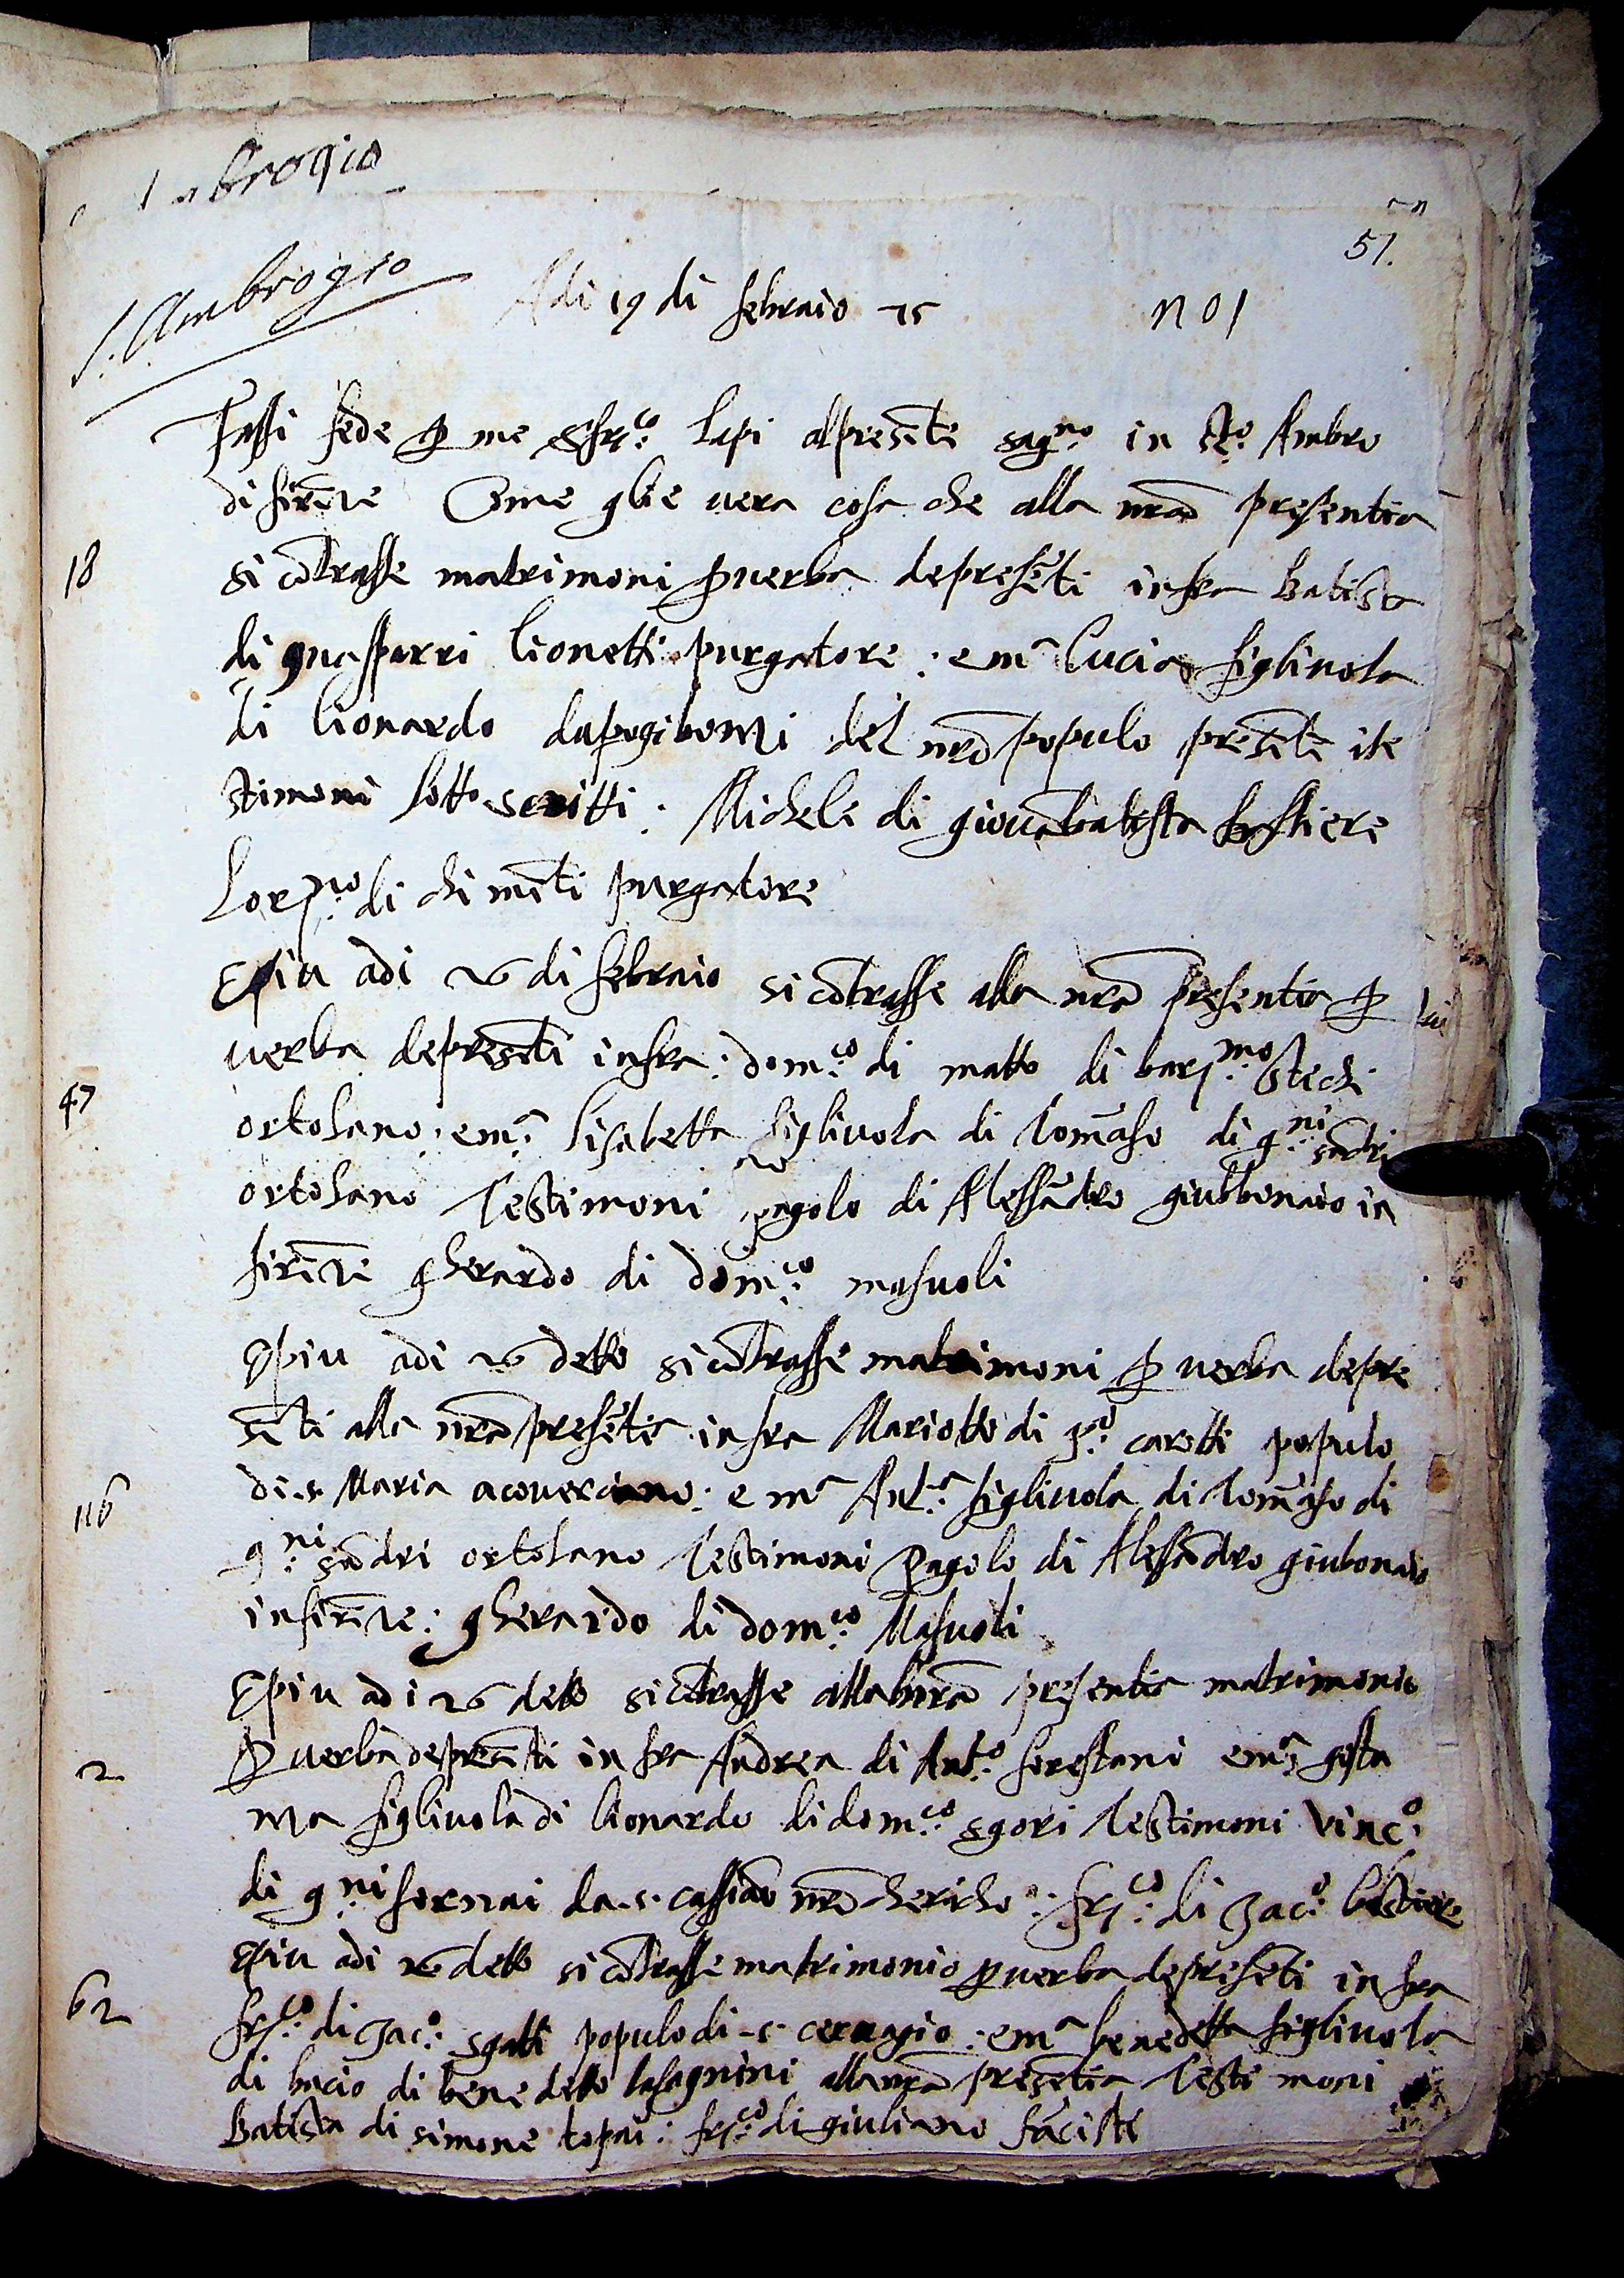 Ambrogio
51.
S. Ambrogio
Adi 19 di febraio 75 no 1
Fassi fede p me S frco lapi alpresēte sagno in sto Ambro
di firēze Come glie vera cosa che alla nrā presentia
18 si cōtrasse matrimoni p verba depresēti infra Batista
di guasparri lionetti purgatore : e ma Lucia figliuola
di lionardo dapogibonzi del nrō populo presēte i te
stimoni sotto scritti : Michele di giouābatista
Lorzno di chimēti purgatore
E piu adi 26 di febraio si cōtrasse alla nrā presentia p
verba depresēti infra : domco di matto di barmo stechi
47 ortolano : e ma lisabetta figliuola di tomaso di gni sādri
ortolano testimoni pagolo di Alessādro giubbonaio in
firēze gherardo di domco masuoli
E piu adi 26 detto si cōtrasse matrimoni p verba depre
sēti alla nrā presētia infra Mariotto di carotti populo
116 di .s. Maria acoverciano : e ma Anta figliuola di tomaso di
gni sādri ortolano testimoni Pagolo di Alessādro giubonaio
in firēze : gherardo di domco Masuoli
E piu adi 26 detto si cōtrasse alla nrā presentia matrimonio
2 p verba depresēti infra Andrea di Anto forestani e ma
figliuola di lionardo di domco sgori testimoni vinco
di gni fornai da .s. cassiāo nrō chericho : frco di Jaco
E piu adi 26 detto si cōtrasse matrimonio p verba depresēti infra
62 frco di Jaco sgatti populo di .s. cervagio : e ma benedetta figliuola
di bacio di benedetto lasagnini alla nrā presētia testi moni
Batista di simone topai : frco di giuliano